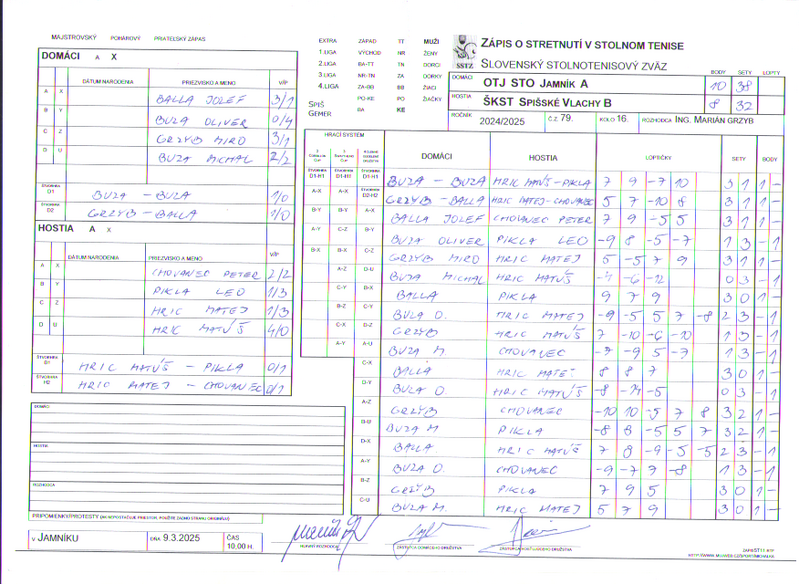 MAJSTROVSKÝ POHÁROVÝ PRIATEĽSKÝ ZÁPAS
DOMÁCI A X
DÁTUM NARODENIA PRIEZVISKO A MENO V/P
A X BALLA JOZEF 3/1
B Y BUZA OLIVER 0/4
C Z GRZYB MIRO 3/1
D U BUZA MICHAL 2/2
ŠTVORHRA D1 BUZA - BUZA 1/0
ŠTVORHRA D2 GRZYB - BALLA 1/0
HOSTIA A X
DÁTUM NARODENIA PRIEZVISKO A MENO V/P
A X CHOVANEC PETER 2/2
B Y PIKLA LEO 1/3
C Z HRIC MATEJ 1/3
D U HRIC MATÚŠ 4/0
ŠTVORHRA D1 HRIC MATÚŠ - PIKLA 0/1
ŠTVORHRA H2 HRIC MATEJ - CHOVANEC 0/1
DOMÁCI:
HOSTIA:
ROZHODCA
PRIPOMIENKY/PROTESTY
V JAMNÍKU DŇA 9.3.2025 ČAS 10.00 H.
EXTRA ZÁPAD TT MUŽI
1.LIGA VÝCHOD NR ŽENY
2.LIGA BA-TT TN DORCI
3.LIGA NR-TN ZA DORKY
4.LIGA ZA-BB BB ŽIACI
PO-KE PO ŽIAČKY
SPIŠ BA KE
GEMER
SSTZ
ZÁPIS O STRETNUTÍ V STOLNOM TENISE
SLOVENSKÝ STOLNOTENISOVÝ ZVÄZ
BODY SETY LOPTY
DOMÁCI OTJ STO JAMNÍK A 10 38
HOSTIA ŠKST SPIŠSKÉ VLACHY B 8 32
ROČNÍK 2024/2025 Č.Z. 79. KOLO 16. ROZHODCA ING. MARIÁN GRZYB
HRACÍ SYSTÉM DOMÁCI HOSTIA LOPTIČKY SETY BODY
BUZA - BUZA HRIC MATÚŠ-PIKLA 7 9 -7 10 3 1 1 -
GRZYB - BALLA HRIC MATEJ-CHOVANEC 5 7 -10 8 3 1 1 -
A-X A-X BALLA JOZEF CHOVANEC PETER 7 9 -5 5 3 1 1 -
B-Y B-Y A-X BUZA OLIVER PIKLA LEO -9 8 -5 -7 1 3 - 1
A-Y C-Z B-Y GRZYB MIRO HRIC MATEJ 5 -5 7 9 3 1 1 -
B-X B-X C-Z BUZA MICHAL HRIC MATÚŠ 0 3 - 1
A-Z D-U BALLA PIKLA 9 7 9 3 0 1 -
C-Y B-X BUZA O. HRIC MATEJ -9 -5 5 7 -8 2 3 - 1
B-Z C-Y GRZYB HRIC MATÚŠ 7 -10 -6 -10 1 3 - 1
C-X D-Z BUZA M CHOVANEC -7 -9 5 -7 1 3 - 1
A-Y A-U BALLA HRIC MATEJ 8 8 7 3 0 1 -
C-X BUZA O. HRIC MATÚŠ 0 3 - 1
D-Y GRZYB CHOVANEC -10 10 -5 7 8 3 2 1 -
A-Z BUZA M PIKLA -8 8 -5 5 7 3 2 1 -
B-U BALLA HRIC MATÚŠ 7 8 -9 -5 -5 2 3 - 1
D-X BUZA O. CHOVANEC -9 -7 7 -8 1 3 - 1
A-Y GRZYB PIKLA 7 9 5 3 0 1 -
B-Z BUZA M. HRIC MATEJ 5 7 9 3 0 1 -
C-U